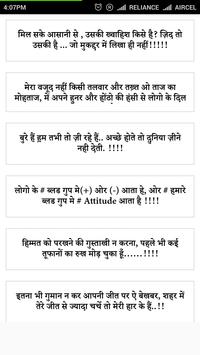 4:07PM
RELIANCE
AIRCEL
मिल सके आसानी से , उसकी ख्वाहिश किसे है? ज़िद तो
उसकी है ... जो मुकद्दर में लिखा ही नहीं!!!!!
मेरा वजुद नहीं किसी तलवार और तख़्त ओ ताज का
मोहताज, में अपने हुनर और होंठो की हंसी से लोगो के दिल
बुरे हैं हम तभी तो ज़ी रहे हैं.. अच्छे होते तो दुनिया ज़ीने
नही देती. ! !!!
लोगो के # ब्लड गुप मे(+) ओर (-) आता हे, ओर # हमारे
ब्लड गुप मे # Attitude आता है !!!!
हिम्मत को परखने की गुस्ताखी न करना, पहले भी कई
तूफानों का रुख मोड़ चुका हूँ......!!!!
इतना भी गुमान न कर आपनी जीत पर ऐ बेखबर, शहर में
तेरे जीत से ज्यादा चर्चे तो मेरी हार के हैं..!!